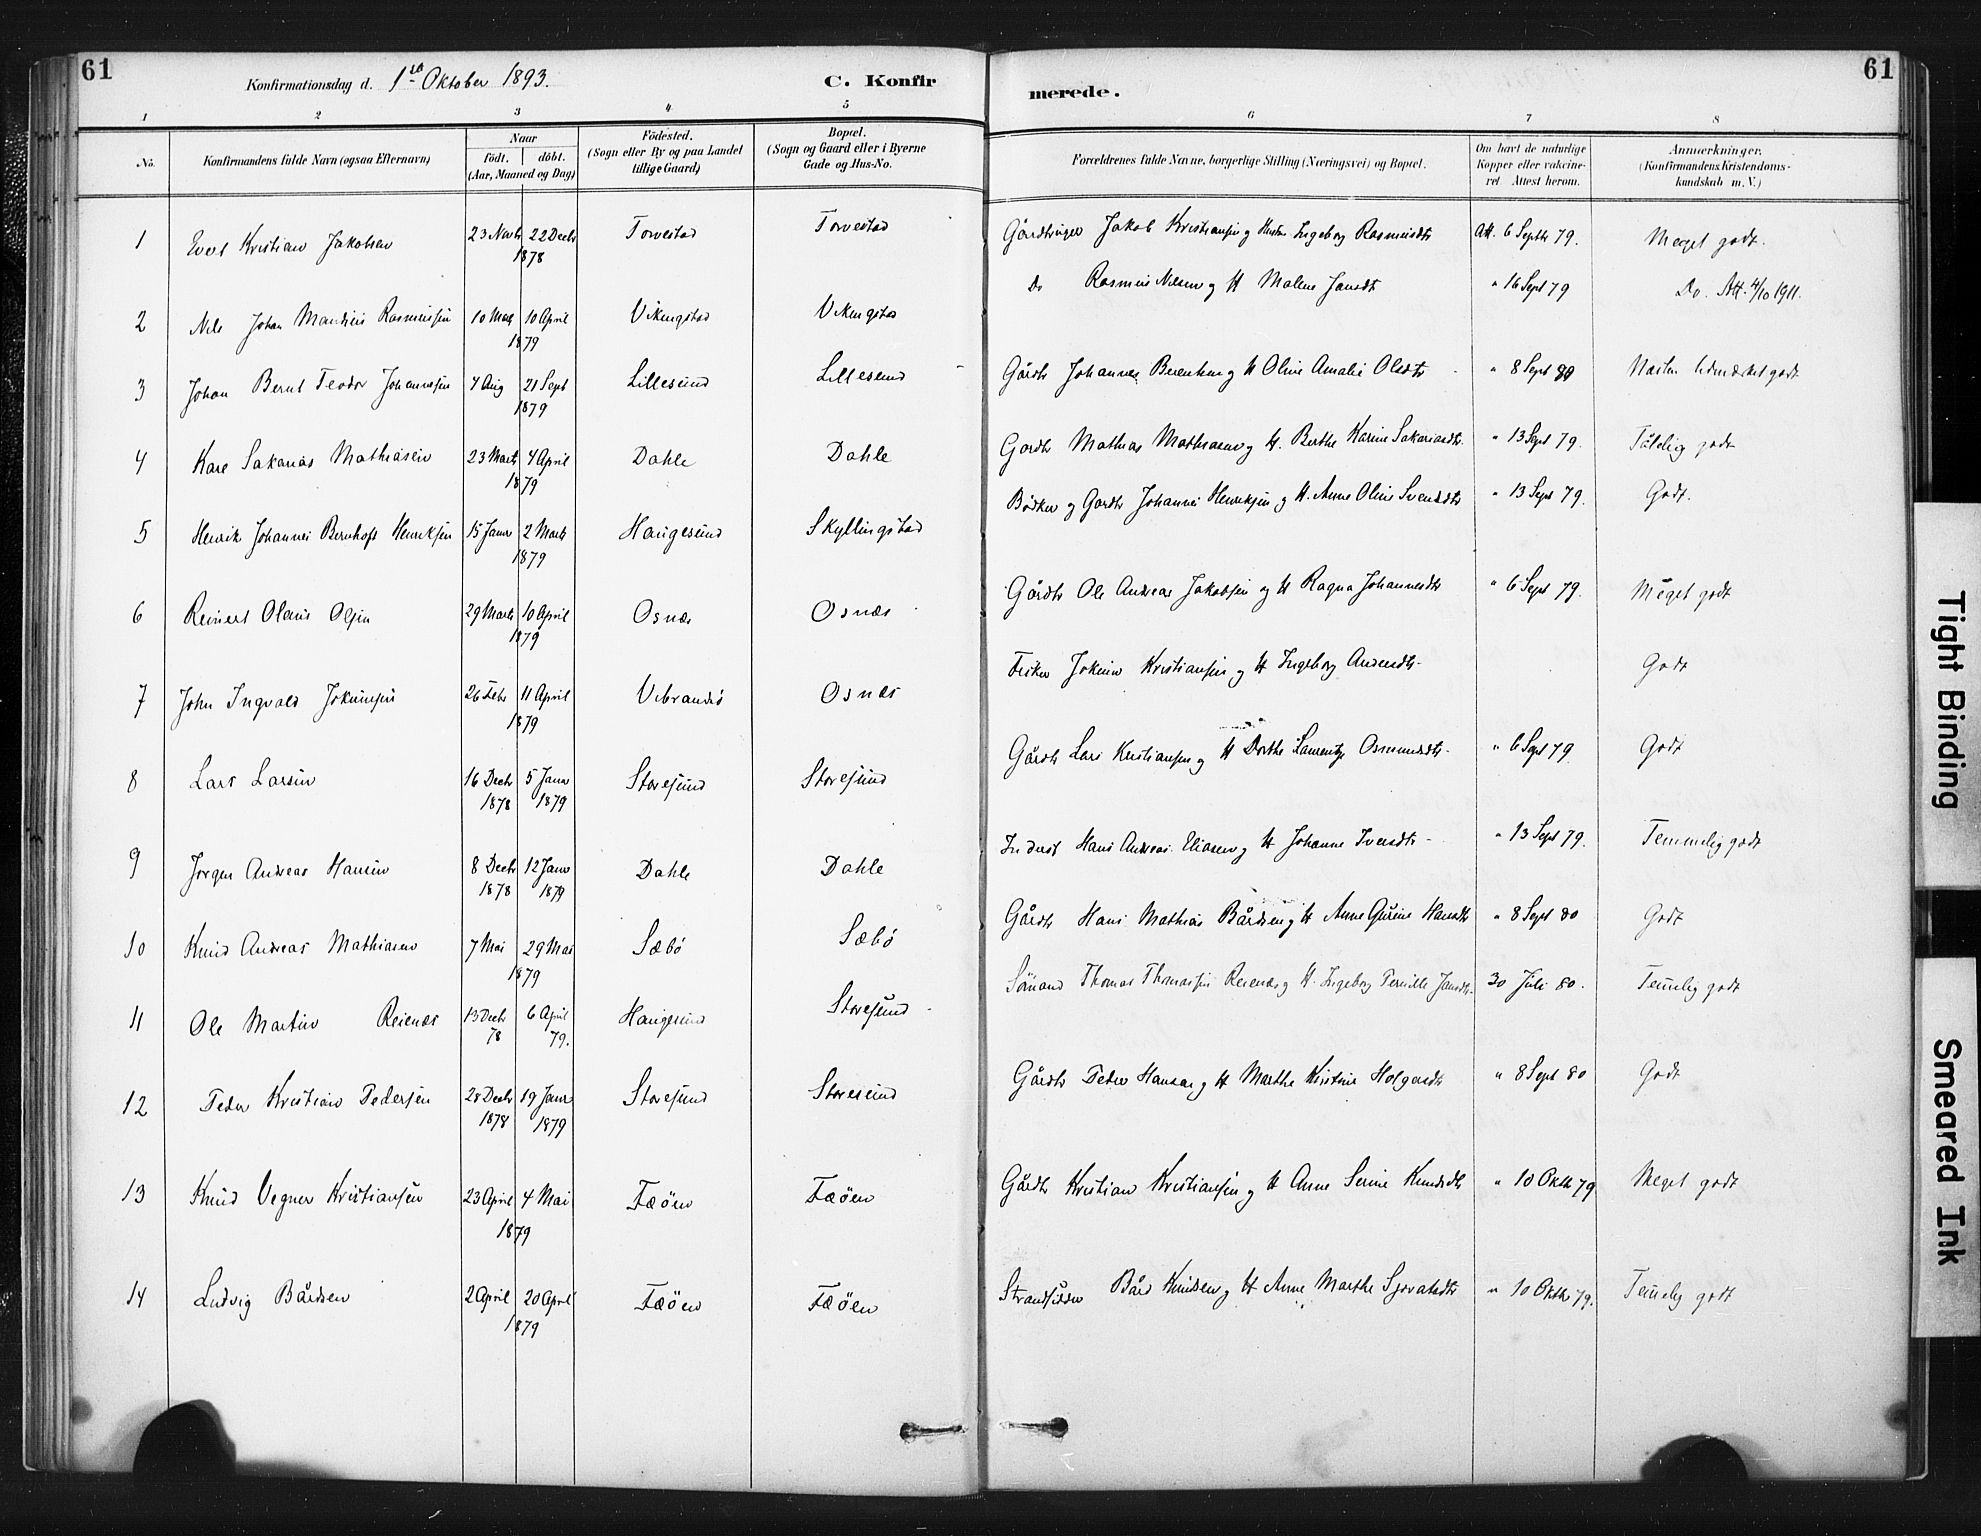 61
Konfirmationsdag d. 1ste Oktober 1893.
C. Konfir
merede.
61
1 2 3 4 5 6 7 8
No.
Konfirmandens fulde Navn (ogsaa Efternavn)
Naar
født. døbt.
(Aar, Maaned og Dag)
Fødested.
(Sogn eller By og paa Landet
tillige Gaard)
Bopæl.
(Sogn og Gaard eller i Byerne
Gade og Hus-No.
Forældrenes fulde Navne, borgerlige Stilling (Næringsvei) og Bopæl.
Om havt de naturlige
Kopper eller vakcine-
ret. Attest herom.
Anmærkninger.
(Konfirmandens Kristendoms-
kundskab m. V.)
1 Kristian Jakobsen 23 Novbr 22 Decbr 1878 Torvestad Torvestad Gårdbruger Jakob Kristiansen og Hustru Ingeborg Rasmusdtr Att. 6 Septbr 79. Meget godt.
2 Nils Johan Rasmussen 10 Mars 10 April 1879 Vikingstad Vikingstad Do Rasmus Nilsen og H Malene Jansdtr " 16 Sept 79 Do. Att. 4/10 1911.
3 Johan Bernt Teodor Johannessen 7 Aug 21 Sept 1879 Lillesund Lillesund Gårdbr Johannes Berentsen og H Oline Amalie Olsdtr " 8 Sept 80 Næsten udmærket godt
4 Kare Sakarias Mathiasen 23 Marts 4 April 1879 Dahle Dahle Gårdbr Mathias Mathiasen og H. Berthe Karine Sakariasdtr. " 13 Sept 79. Tålelig godt
5 Henrik Johannes Bernhoft Henriksen 15 Janr 2 Marts 1879 Haugesund Skyllingstad Bødker og Gårdbr Johannes Henriksen og H. Anne Oline Svendsdtr " 13 Sept 79. Godt.
6 Reinert Olaus Olsen 29 Marts 10 April 1879 Osnæs Osnæs Gårdbr Ole Andreas Jakobsen og H Ragna Johannesdtr " 6 Sept 79. Meget godt
7 John Ingvald Jokumsen 26 Febr 11 April 1879 Vibrandsø Osnæs Fisker Jokum Kristiansen og H Ingeborg Godt
8 Lars Larsen 16 Decbr 1878 5 Janr 1879 Storesund Storesund Gårdbr Lars Kristiansen og H Dorthe Osmundsdtr. " 6 Sept 79. Godt
9 Jørgen Andreas Hansen 8 Decbr 1878 12 Janr 1879 Dahle Dahle Inderst Hans Andreas Eliasen og H Johanne Iversdtr " 13 Sept 79. Temmelig godt
10 Knud Andreas Mathiasen 7 Mai 29 Mai 1879 Sæbø Sæbø Gårdbr Hans Mathias Bårdsen og H Anne Gurine Hansdtr " 8 Sept 80 Godt
11 Ole Martin Reienæs 13 Decbr 78 6 April 79. Haugesund Storesund Sømand Thomas Thomassen Reienæs og H. Ingeborg Pernille Jansdtr. 30 Juli 80. Temelig godt
12 Peder Kristian Pedersen 28 Decbr 1878 19 Janr 1879 Storesund Storesund Gårdbr Peder Hansen og H Marthe Kristine Holgersdtr " 8 Sept 80 Godt
13 Knud Vegner Kristiansen 23 April 4 Mai 1879 Fæøen Fæøen Gårdbr Kristian Kristiansen og H Anne Serine Knudsdtr " 10 Oktb 79 Meget godt
14 Ludvig Bårdsen 2 April 20 April 1879 Fæøen Fæøen Strandsidder Bård Knudsen og H Anne Marthe Sjovatsdtr " 10 Oktbr 79. Temelig godt
Tight Binding
Smeared Ink